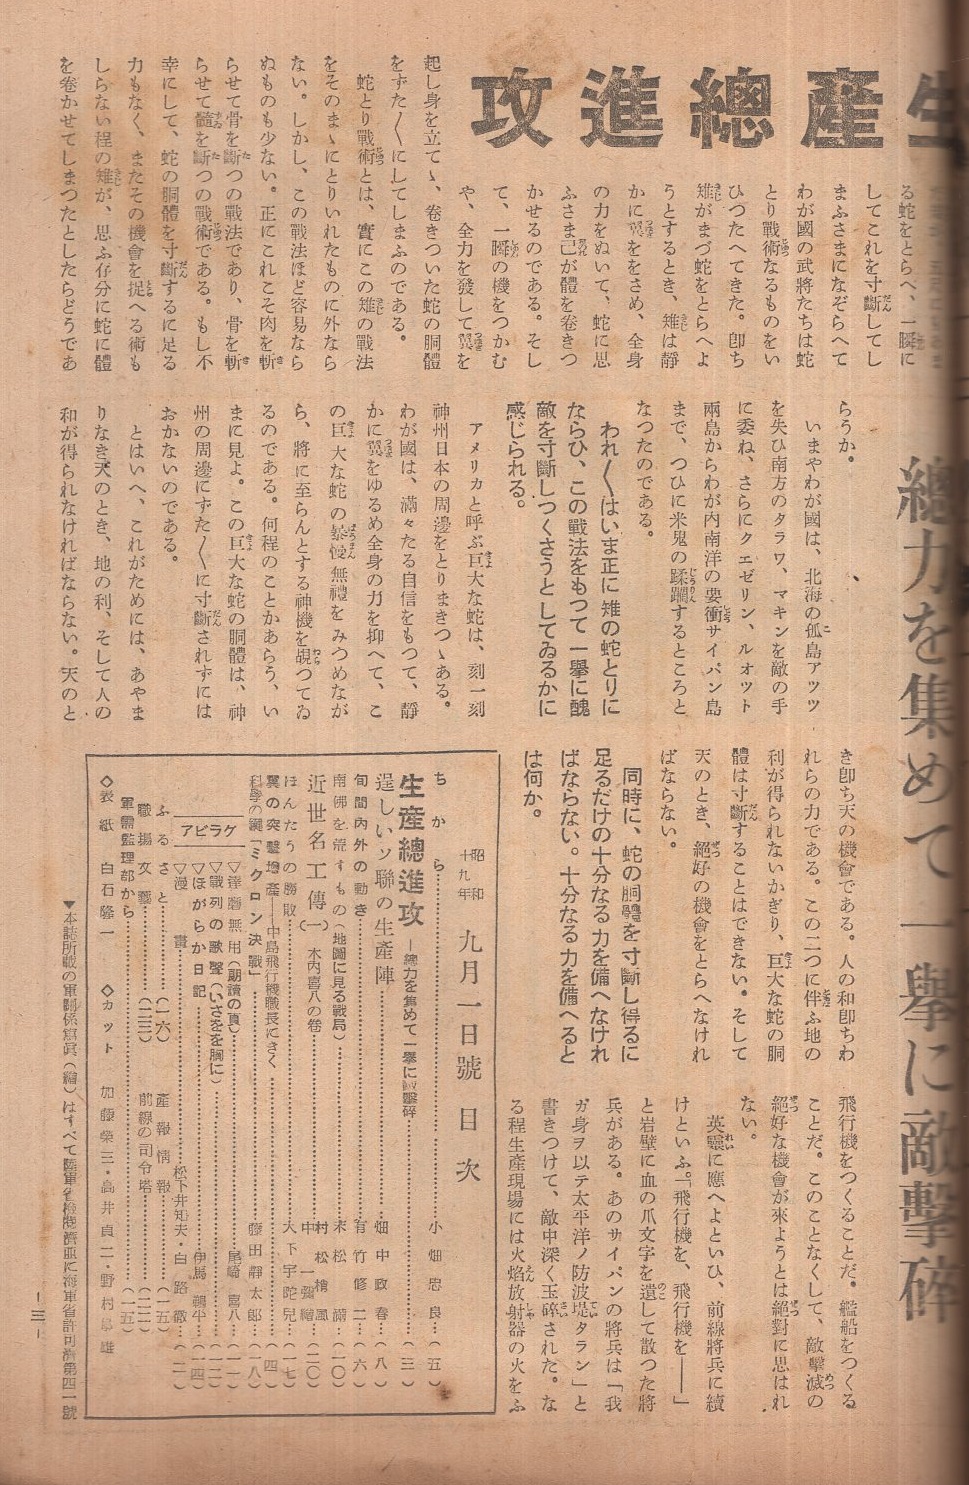 生產總進攻
總力を集めて一擧に敵擊碎
る蛇をとらへ、一瞬に
してこれを寸斷してし
まふさまになぞらへて
わが國の武將たちは蛇
とり戰術なるものをい
ひつたへてきた。卽ち
雉がまづ蛇をとらへよ
うとするとき、雉は靜
かに翼ををさめ、全身
の力をぬいて、蛇に思
ふさま己が體を卷きつ
かせるのである。そし
て、一瞬の機をつかむ
や、全力を發して翼を
起し身を立てゝ、卷きついた蛇の胴體
をずた〳〵にしてしまふのである。
蛇とり戰術とは、實にこの雉の戰法
をそのまゝにとりいれたものに外なら
ない。しかし、この戰法ほど容易なら
ぬものも少ない。正にこれこそ肉を斬
らせて骨を斷つの戰法であり、骨を斬
らせて髓を斷つの戰術である。もし不
幸にして、蛇の胴體を寸斷するに足る
力もなく、またその機會を捉へる術も
しらない程の雉が、思ふ存分に蛇に體
を卷かせてしまつたとしたらどうであ
らうか。
いまやわが國は、北海の孤島アツツ
を失ひ南方のタラワ、マキンを敵の手
に委ね、さらにクエゼリン、ルオツト
兩島からわが內南洋の要衝サイパン島
まで、つひに米鬼の蹂躙するところと
なつたのである。
われ〳〵はいま正に雉の蛇とりに
ならひ、この戰法をもつて一擧に醜
敵を寸斷しつくさうとしてゐるかに
感じられる。
アメリカと呼ぶ巨大な蛇は、刻一刻
神州日本の周邊をとりまきつゝある。
わが國は、滿々たる自信をもつて、靜
かに翼をゆるめ全身の力を抑へて、こ
の巨大な蛇の暴慢無禮をみつめなが
ら、將に至らんとする神機を覘つてゐ
るのである。何程のことかあらう、い
まに見よ。この巨大な蛇の胴體は、神
州の周邊にずた〳〵に寸斷されずには
おかないのである。
とはいへ、これがためには、あやま
りなき天のとき、地の利、そして人の
和が得られなければならない。天のと
き卽ち天の機會である。人の和卽ちわ
れらの力である。この二つに伴ふ地の
利が得られないかぎり、巨大な蛇の胴
體は寸斷することはできない。そして
天のとき、絕好の機會をとらへなけれ
ばならない。
同時に、蛇の胴體を寸斷し得るに
足るだけの十分なる力を備へなけれ
ばならない。十分なる力を備へると
は何か。
飛行機をつくることだ。艦船をつくる
ことだ。このことなくして、敵擊滅の
絕好な機會が來ようとは絕對に思はれ
ない。
英靈に應へよといひ、前線將兵に續
けといふ。「飛行機を、飛行機を――」
と岩壁に血の爪文字を遺して散つた將
兵がある。あのサイパンの將兵は「我
ガ身ヲ以テ太平洋ノ防波堤タラン」と
書きつけて、敵中深く玉碎された。な
る程生產現場には火焰放射器の火をふ
昭和十九年 九月一日號 目次
ちから……小畑忠良…(五)
生產總進攻―總力を集めて一擧に敵擊碎……(三)
逞しいソ聯の生產陣……畑中政春…(八)
旬間內外の動き……有竹修二…(六)
南佛を荒すもの(地圖に見る戰局)……(一〇)
近世名工傳(一)木內喜八の卷……(二〇)
ほんたうの勝敗……大下宇陀兒…(一七)
翼の突擊增產――中島飛行機職長にきく……(四)
科學の鬪「ミクロン決戰」……藤田靜太郞…(一八)
グラビア
▽達勝無用(朗讀の頁)……尾崎喜八…(一一)
▽戰列の歌聲(いさをを胸に)……(一二)
▽ほがらか日記……(一四)
▽漫畫……松下井知夫・白路徹…(二)
ふるさと……(一六)
產報情報……(一五)
職場文藝……(二三)
前線の司令塔……(二二)
軍需監理部から……(一五)
◇表紙 白石隆一
◇カット 加藤榮三・高井貞二・野村
▼本誌所載の軍關係寫眞(繪)はすべて陸軍省檢閱濟並に海軍省許可濟第四一號
―三―